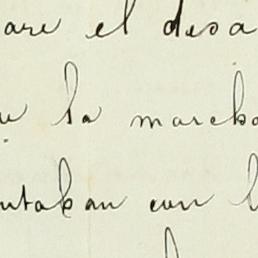 are el desa
la marcha
ntaban con l